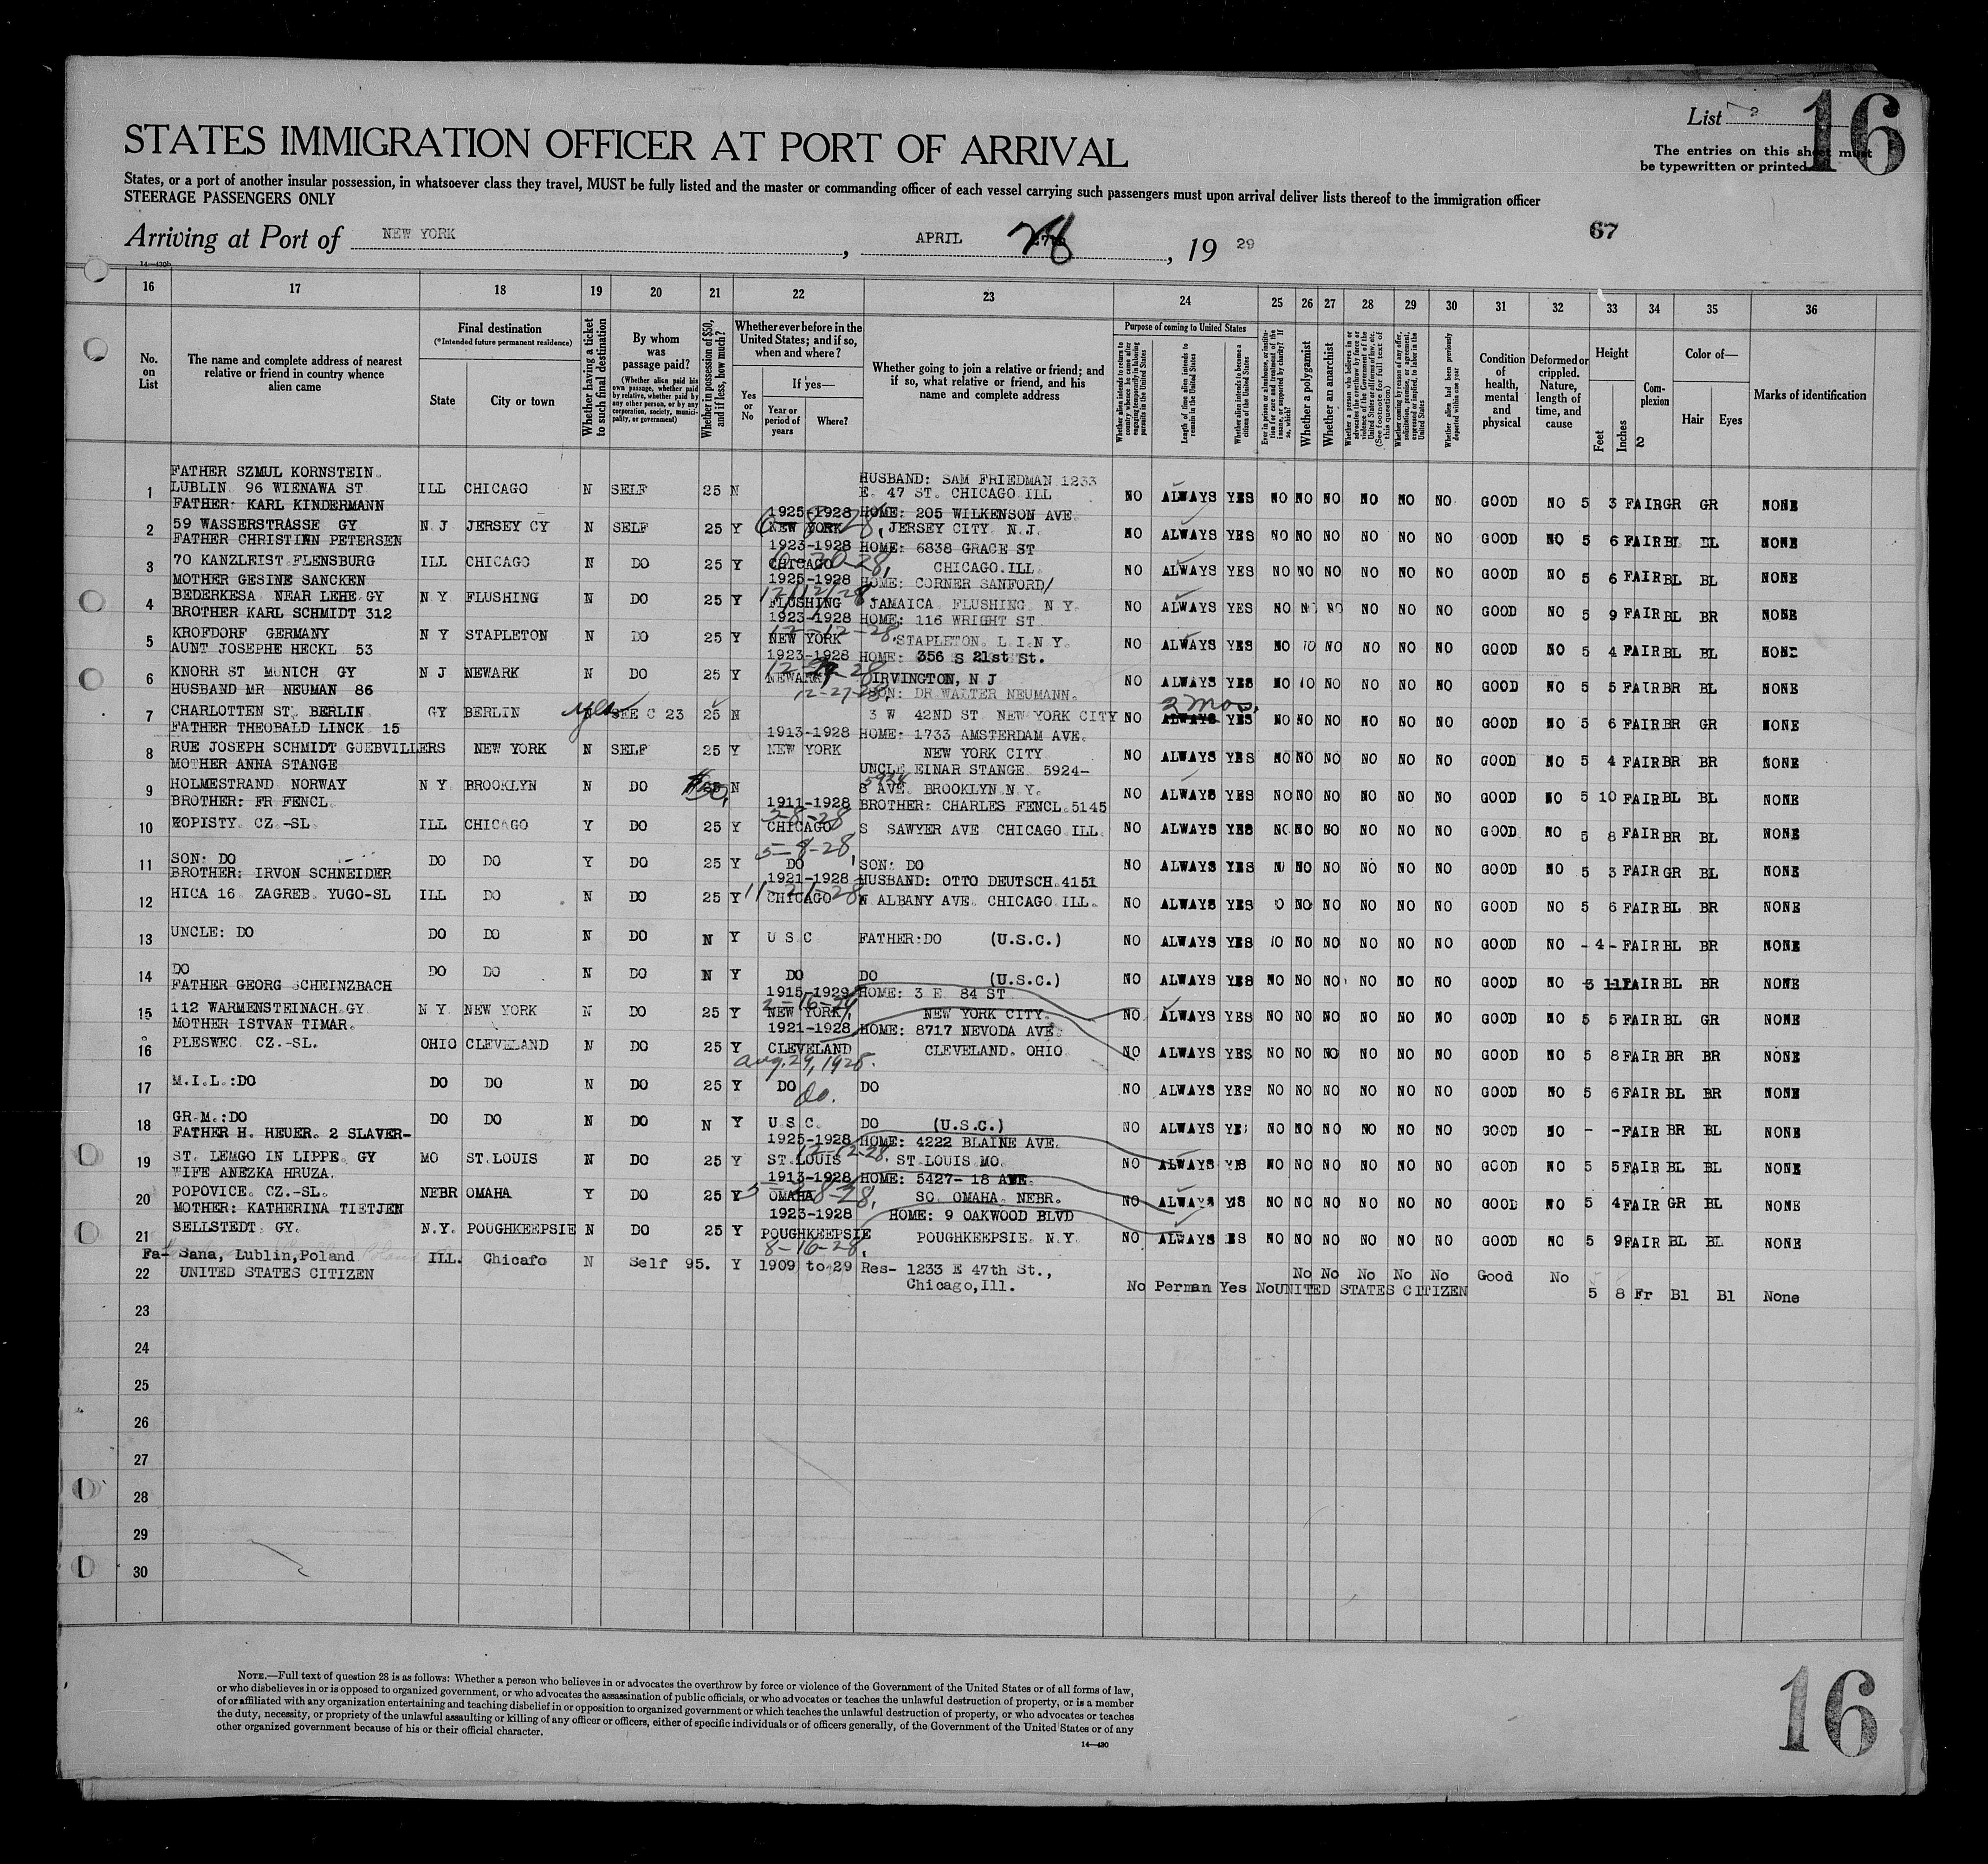 List 2
16
The entries on this sheet must
be typewritten or printed.
STATES IMMIGRATION OFFICER AT PORT OF ARRIVAL
States, or a port of another insular possession, in whatsoever class they travel, MUST be fully listed and the master or commanding officer of each vessel carrying such passengers must upon arrival deliver lists thereof to the immigration officer
STEERAGE PASSENGERS ONLY
67
Arriving at Port of NEW YORK, APRIL 28, 19 29
14—430b
16 17 18 19 20 21 22 23 24 25 26 27 28 29 30 31 32 33 34 35 36
No. on List
The name and complete address of nearest relative or friend in country whence alien came
Final destination
(*Intended future permanent residence)
State
City or town
Whether having a ticket to such final destination
By whom was passage paid?
(Whether alien paid his own passage, whether paid by relative, whether paid by any other person, or by any corporation, society, municipality, or government)
Whether in possession of $50, and if less, how much?
Whether ever before in the United States; and if so, when and where?
Yes or No
If yes—
Year or period of years
Where?
Whether going to join a relative or friend; and if so, what relative or friend, and his name and complete address
Purpose of coming to United States
Whether alien intends to return to country whence he came after engaging temporarily in laboring pursuits in the United States
Length of time alien intends to remain in the United States
Whether alien intends to become a citizen of the United States
Ever in prison or almshouse, or institution for care and treatment of the insane, or supported by charity? If so, which?
Whether a polygamist
Whether an anarchist
Whether a person who believes in or advocates the overthrow by force or violence of the Government of the United States or all forms of law, etc. (See footnote for full text of this question)
Whether coming by reason of any offer, solicitation, promise, or agreement, expressed or implied, to labor in the United States
Whether alien had been previously deported within one year
Condition of health, mental and physical
Deformed or crippled. Nature, length of time, and cause
Height
Feet
Inches
Complexion
2
Color of—
Hair
Eyes
Marks of identification
FATHER SZMUL KORNSTEIN. HUSBAND: SAM FRIEDMAN 1233
1 LUBLIN. 96 WIENAWA ST ILL CHICAGO N SELF 25 N E. 47 ST. CHICAGO ILL NO ALWAYS YES NO NO NO NO NO NO GOOD NO 5 3 FAIR GR GR NONE
FATHER: KARL KINDERMANN 1925-1928 HOME: 205 WILKENSON AVE.
2 59 WASSERSTRASSE GY N J JERSEY CY N SELF 25 Y NEW YORK JERSEY CITY. N.J. NO ALWAYS YES NO NO NO NO NO NO GOOD NO 5 6 FAIR BL BL NONE
FATHER CHRISTINN PETERSEN 1923-1928 HOME: 6838 GRACE ST
3 70 KANZLEIST FLENSBURG ILL CHICAGO N DO 25 Y CHICAGO CHICAGO.ILL. NO ALWAYS YES NO NO NO NO NO NO GOOD NO 5 6 FAIR BL BL NONE
MOTHER GESINE SANCKEN 1925-1928 HOME: CORNER SANFORD/
4 BEDERKESA NEAR LEHE GY N Y FLUSHING N DO 25 Y 12/12/28 FLUSHING JAMAICA FLUSHING N Y. NO ALWAYS YES NO NO NO NO NO NO GOOD NO 5 9 FAIR BL BR NONE
BROTHER KARL SCHMIDT 312 1923-1928 HOME: 116 WRIGHT ST
5 KROFDORF GERMANY N Y STAPLETON N DO 25 Y 12-12-28 NEW YORK STAPLETON. L.I.N Y. NO ALWAYS YES NO NO NO NO NO NO GOOD NO 5 4 FAIR BL BL NONE
AUNT JOSEPHE HECKL 53 1923-1928 HOME: 356 S 21st St.
6 KNORR ST MUNICH GY N J NEWARK N DO 25 Y NEWARK IRVINGTON, N J NO ALWAYS YES NO NO NO NO NO NO GOOD NO 5 5 FAIR BR BL NONE
HUSBAND MR NEUMAN 86 12-27-28 SON: DR WALTER NEUMANN.
7 CHARLOTTEN ST. BERLIN GY BERLIN yes SEE C 23 25 N 3 W 42ND ST NEW YORK CITY NO 2 mos. ALWAYS YES NO NO NO NO NO NO GOOD NO 5 6 FAIR BR GR NONE
FATHER THEOBALD LINCK 15 1913-1928 HOME: 1733 AMSTERDAM AVE.
8 RUE JOSEPH SCHMIDT GUEBVILLERS NEW YORK N SELF 25 Y NEW YORK NEW YORK CITY NO ALWAYS YES NO NO NO NO NO NO GOOD NO 5 4 FAIR BR BR NONE
MOTHER ANNA STANGE UNCLE EINAR STANGE 5924-
9 HOLMESTRAND NORWAY N Y BROOKLYN N DO $50. N 8 AVE. BROOKLYN.N.Y. NO ALWAYS YES NO NO NO NO NO NO GOOD NO 5 10 FAIR BL BL NONE
BROTHER: FR FENCL. 1911-1928 BROTHER: CHARLES FENCL.5145
10 KOPISTY. CZ.-SL. ILL CHICAGO Y DO 25 Y 5-8-28 CHICAGO S SAWYER AVE CHICAGO ILL. NO ALWAYS YES NO NO NO NO NO NO GOOD NO 5 8 FAIR BR BL NONE
11 SON: DO DO DO Y DO 25 Y 5-8-28, DO SON: DO NO ALWAYS YES NO NO NO NO NO NO GOOD NO 5 3 FAIR GR BL NONE
BROTHER: IRVON SCHNEIDER 1921-1928 HUSBAND: OTTO DEUTSCH.4151
12 HICA 16. ZAGREB. YUGO-SL ILL DO N DO 25 Y 11-21-28 CHICAGO N ALBANY AVE. CHICAGO ILL. NO ALWAYS YES NO NO NO NO NO NO GOOD NO 5 6 FAIR BL BR NONE
13 UNCLE: DO DO DO N DO N Y U S C FATHER:DO (U.S.C.) NO ALWAYS YES NO NO NO NO NO NO GOOD NO - 4 - FAIR BL BR NONE
14 DO DO DO N DO N Y DO DO (U.S.C.) NO ALWAYS YES NO NO NO NO NO NO GOOD NO 3 11 FAIR BL BR NONE
FATHER GEORG SCHEINZBACH 1915-1929 HOME: 3 E 84 ST
15 112 WARMENSTEINACH.GY N Y. NEW YORK N DO 25 Y 2-16-29 NEW YORK NEW YORK CITY. NO ALWAYS YES NO NO NO NO NO NO GOOD NO 5 5 FAIR BL GR NONE
MOTHER ISTVAN TIMAR. 1921-1928 HOME: 8717 NEVODA AVE.
16 PLESWEC. CZ.-SL. OHIO CLEVELAND N DO 25 Y CLEVELAND CLEVELAND. OHIO. NO ALWAYS YES NO NO NO NO NO NO GOOD NO 5 8 FAIR BR BR NONE
Aug. 29, 1928.
17 M.I.L.:DO DO DO N DO 25 Y DO DO NO ALWAYS YES NO NO NO NO NO NO GOOD NO 5 6 FAIR BL BR NONE
do.
18 GR.M.:DO DO DO N DO N Y U S C. DO (U.S.C.) NO ALWAYS YES NO NO NO NO NO NO GOOD NO - - FAIR BR BL NONE
FATHER H. HEUER. 2 SLAVER- 1925-1928 HOME: 4222 BLAINE AVE.
19 ST. LEMGO IN LIPPE. GY MO ST.LOUIS N DO 25 Y 12-12-28. ST.LOUIS ST.LOUIS MO. NO ALWAYS YES NO NO NO NO NO NO GOOD NO 5 5 FAIR BL BL NONE
WIFE ANEZKA HRUZA. 1913-1928 HOME: 5427- 18 AVE.
20 POPOVICE. CZ.-SL. NEBR OMAHA Y DO 25 Y OMAHA SO. OMAHA. NEBR. NO ALWAYS YES NO NO NO NO NO NO GOOD NO 5 4 FAIR GR BL NONE
MOTHER: KATHERINA TIETJEN 1923-1928 HOME: 9 OAKWOOD BLVD
21 SELLSTEDT. GY. N.Y. POUGHKEEPSIE N DO 25 Y POUGHKEEPSIE POUGHKEEPSIE. N.Y. NO ALWAYS YES NO NO NO NO NO NO GOOD NO 5 9 FAIR BL BL NONE
8-16-28.
Fa- Sana, Lublin,Poland ILL. Chicafo N Self 95. Y 1909 to 29 Res- 1233 E 47th St.,
22 UNITED STATES CITIZEN Chicago,Ill. No Perman Yes No No No No No No Good No 5 8 Fr Bl Bl None
UNITED STATES CITIZEN
23
24
25
26
27
28
29
30
NOTE.—Full text of question 28 is as follows: Whether a person who believes in or advocates the overthrow by force or violence of the Government of the United States or of all forms of law,
or who disbelieves in or is opposed to organized government, or who advocates the assassination of public officials, or who advocates or teaches the unlawful destruction of property, or is a member
of or affiliated with any organization entertaining and teaching disbelief in or opposition to organized government or which teaches the unlawful destruction of property, or who advocates or teaches
the duty, necessity, or propriety of the unlawful assaulting or killing of any officer or officers, either of specific individuals or of officers generally, of the Government of the United States or of any
other organized government because of his or their official character.
14—430
16